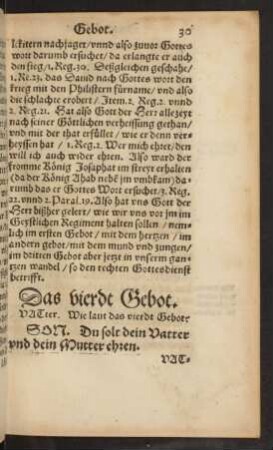 Gebot. 30
lckitern nachjaget / vnnd also zuuor Gottes
wort darumb ersuchet / da erlangte er auch
den sieg / 1. Reg. 30. Desßgleichen geschahe /
1. Re. 23. das Dauid nach Gottes wort den
krieg mit den Philistern fürname / vnd also
die schlachte erobert / Item. 2. Reg. 2. vnnd
2. Reg. 21. Hat also Gott der Herr allezeyt
nach seiner Göttlichen verheissung gethan /
vnd mit der that erfüllet / wie er denn ver-
heyssen hat / 1. Reg. 2. Wer mich ehret / den
will ich auch wider ehren. Also ward der
fromme König Josaphat im streyt erhalten
(da der König Ahab nebē jm vmbkam) da-
rumb das er Gottes Wort ersuchet / 3. Reg.
22. vnnd 2. Paral. 19. Also hat vns Gott der
Herr bißher gelert / wie wir vns vor jm im
Geystlichen Regiment halten sollen / nem-
lich im ersten Gebot / mit dem hertzen / im
andern gebot / mit dem mund vnd zungen /
im dritten Gebot aber jetzt in vnserm gan-
tzen wandel / so den rechten Gottesdienst
betrifft.
Das vierdt Gebot.
VATter. Wie laut das vierdt Gebot?
SON. Du solt dein Vatter
vnd dein Mutter ehren.
VAT-